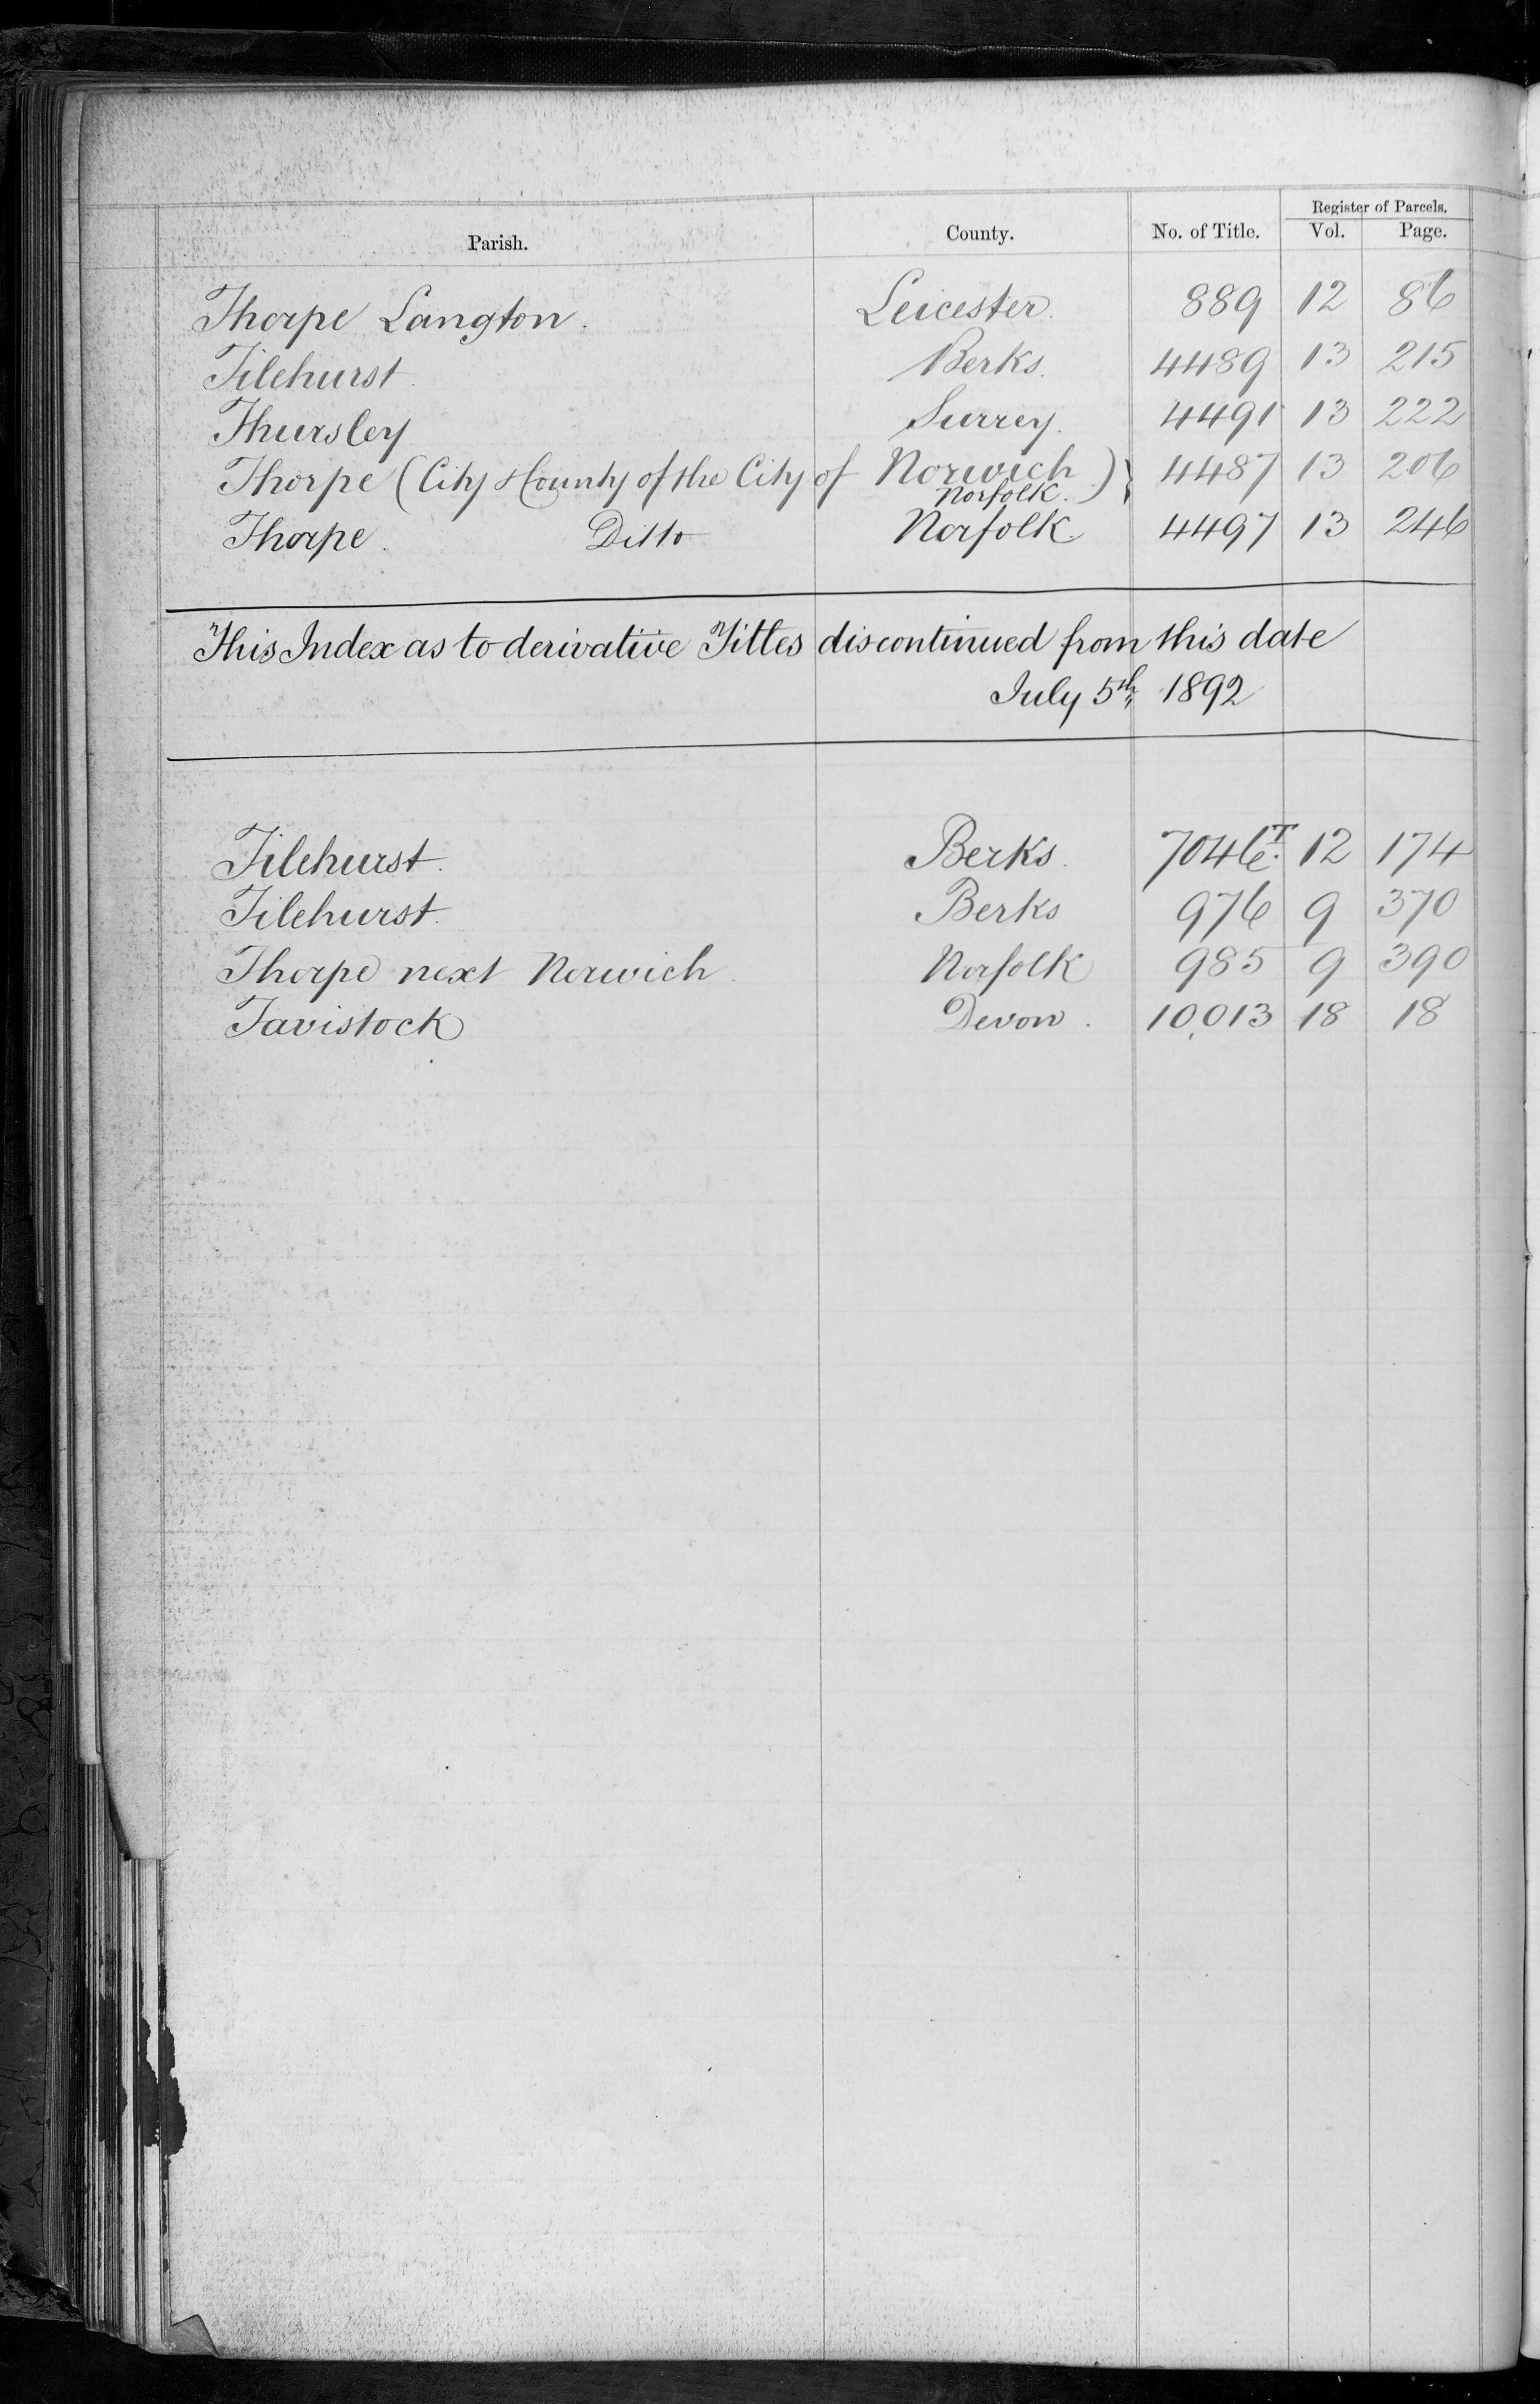 Register of Parcels.
Parish. County. No. of Title. Vol. Page.
Thorpe Langton. Leicester. 889 12 86
Tilehurst. Berks. 4489 13 215
Thursley Surrey. 4491 13 222
Thorpe (City & County of the City of Norwich) 4487 13 206
Norfolk.
Thorpe. Ditto Norfolk. 4497 13 246
This Index as to derivative Titles discontinued from this date
July 5th 1892
Tilehurst. Berks. 12 174
Tilehurst. Berks 976 9 370
Thorpe next Norwich. Norfolk 985 9 390
Tavistock Devon. 10,013 18 18